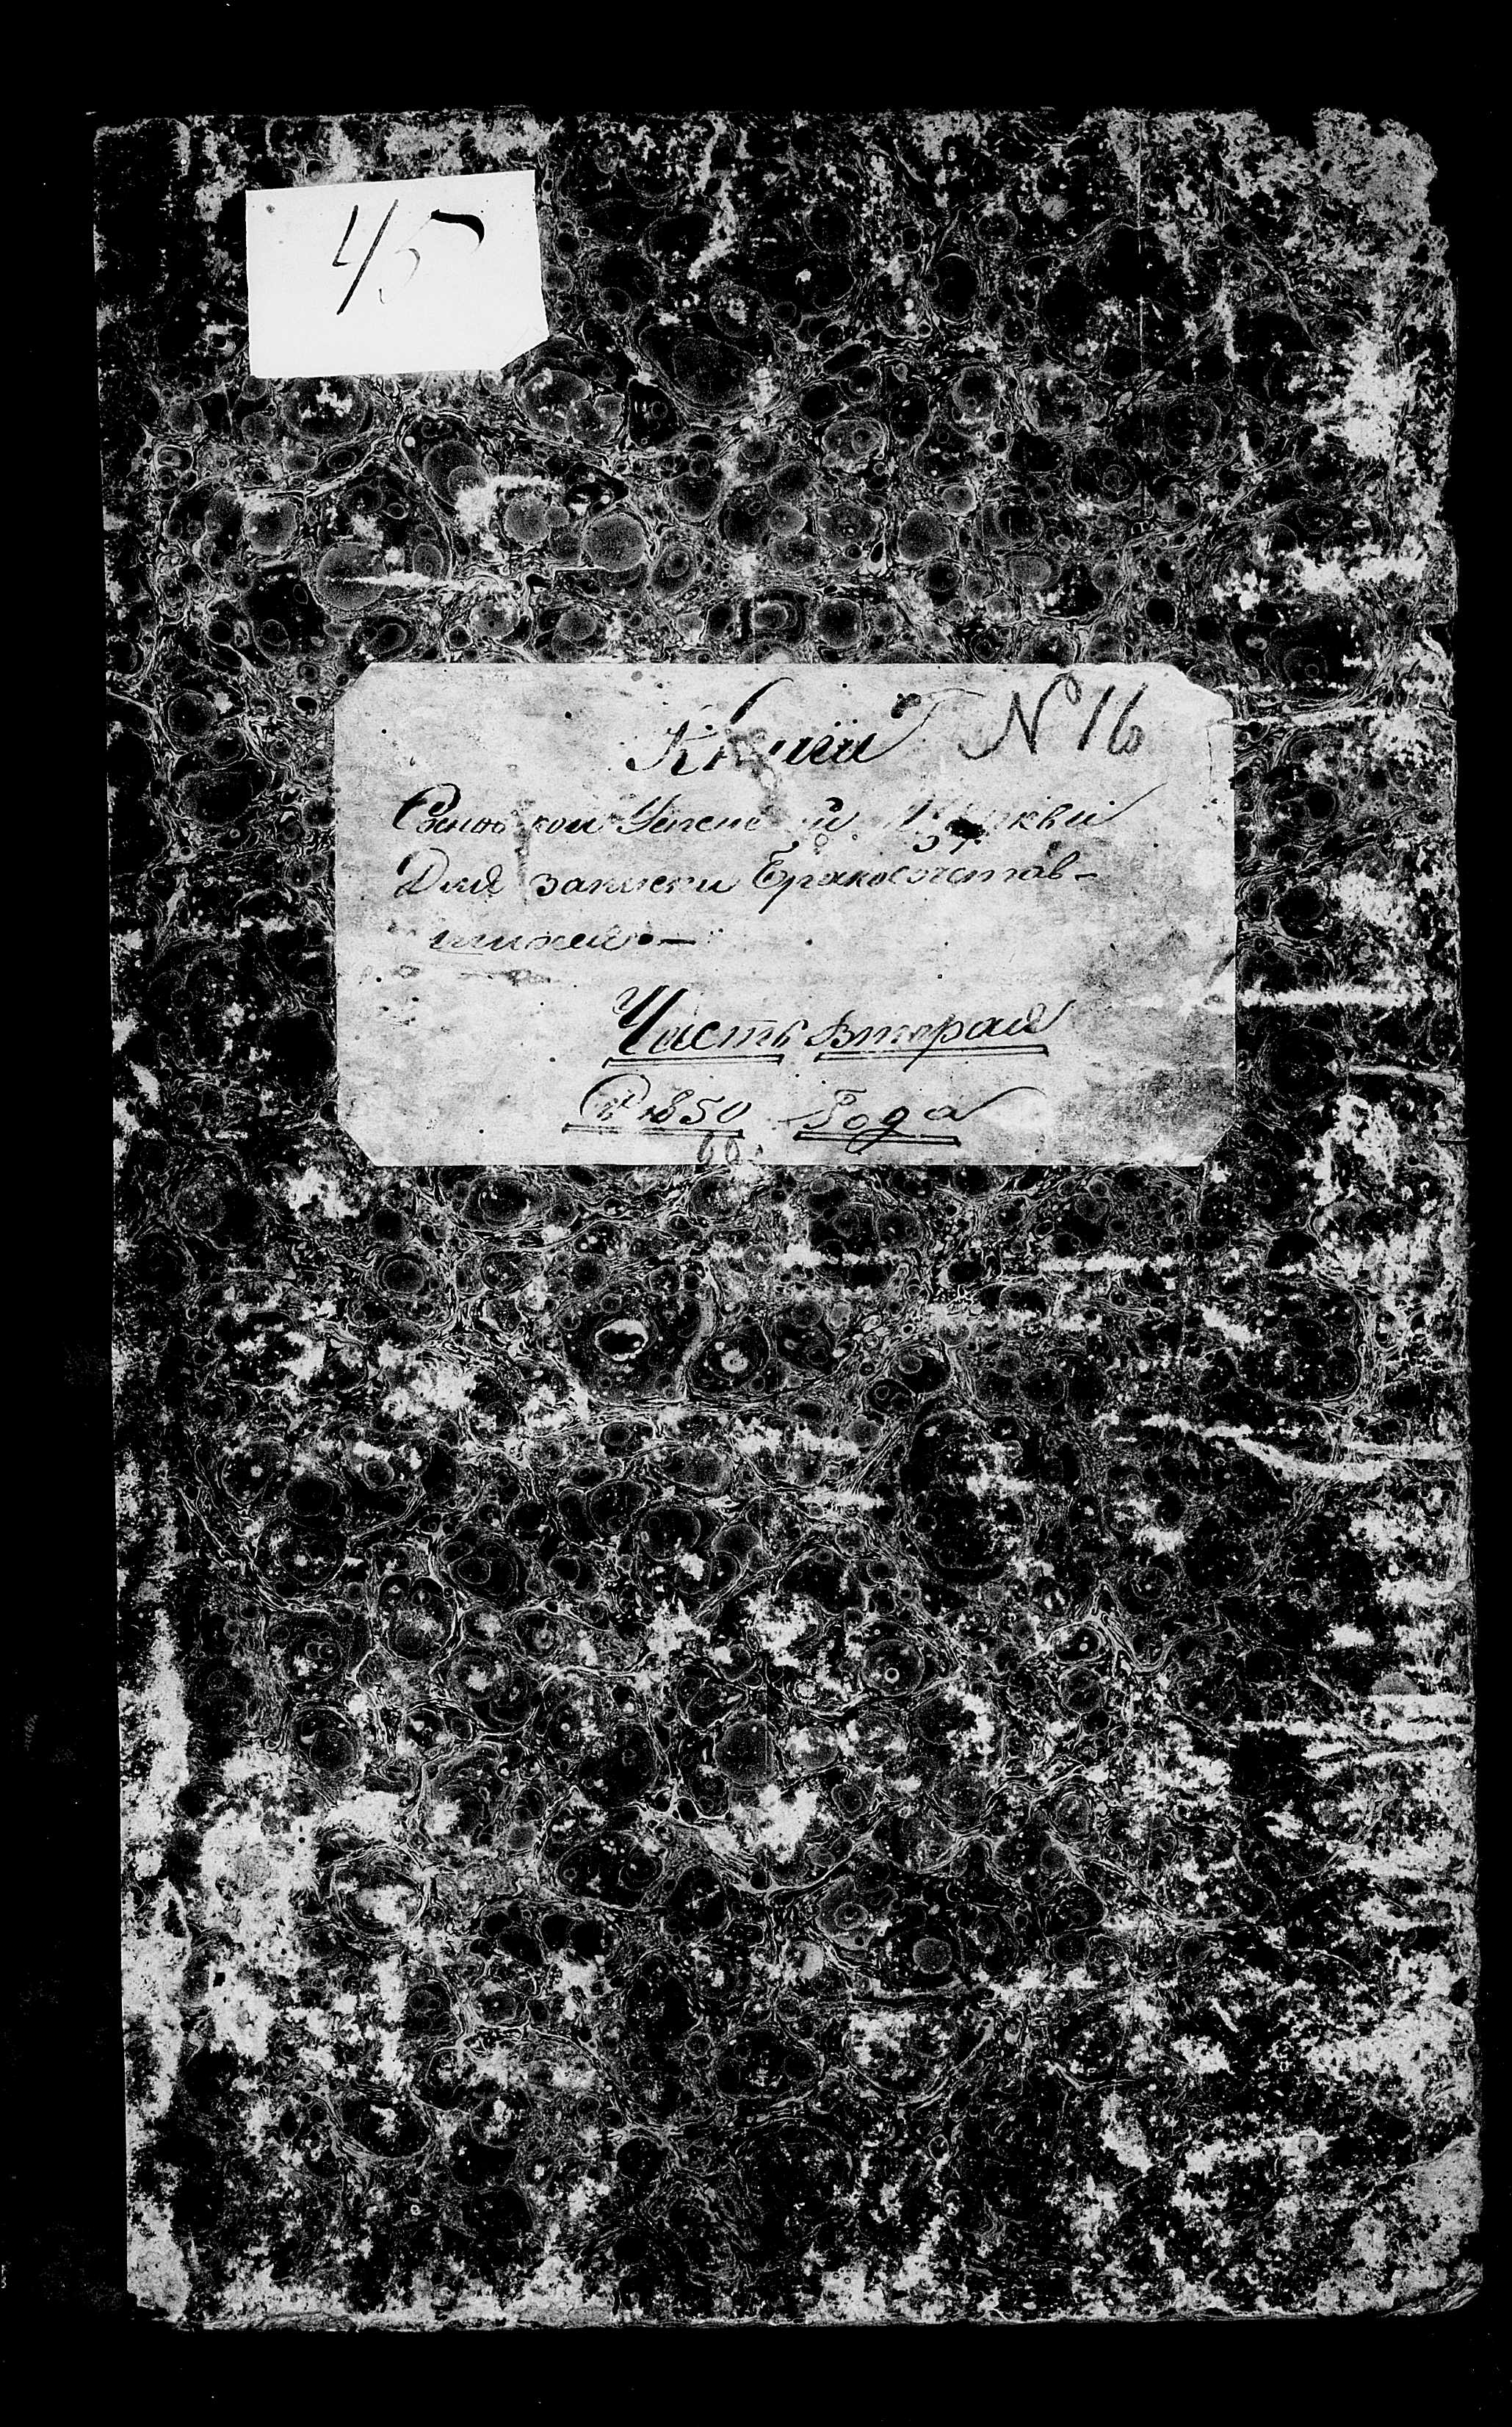 45
Книги № 16
Успенской Церкви
Для записки Бракосочетав-
шихся —
Часть вторая
С 1850 Года
60